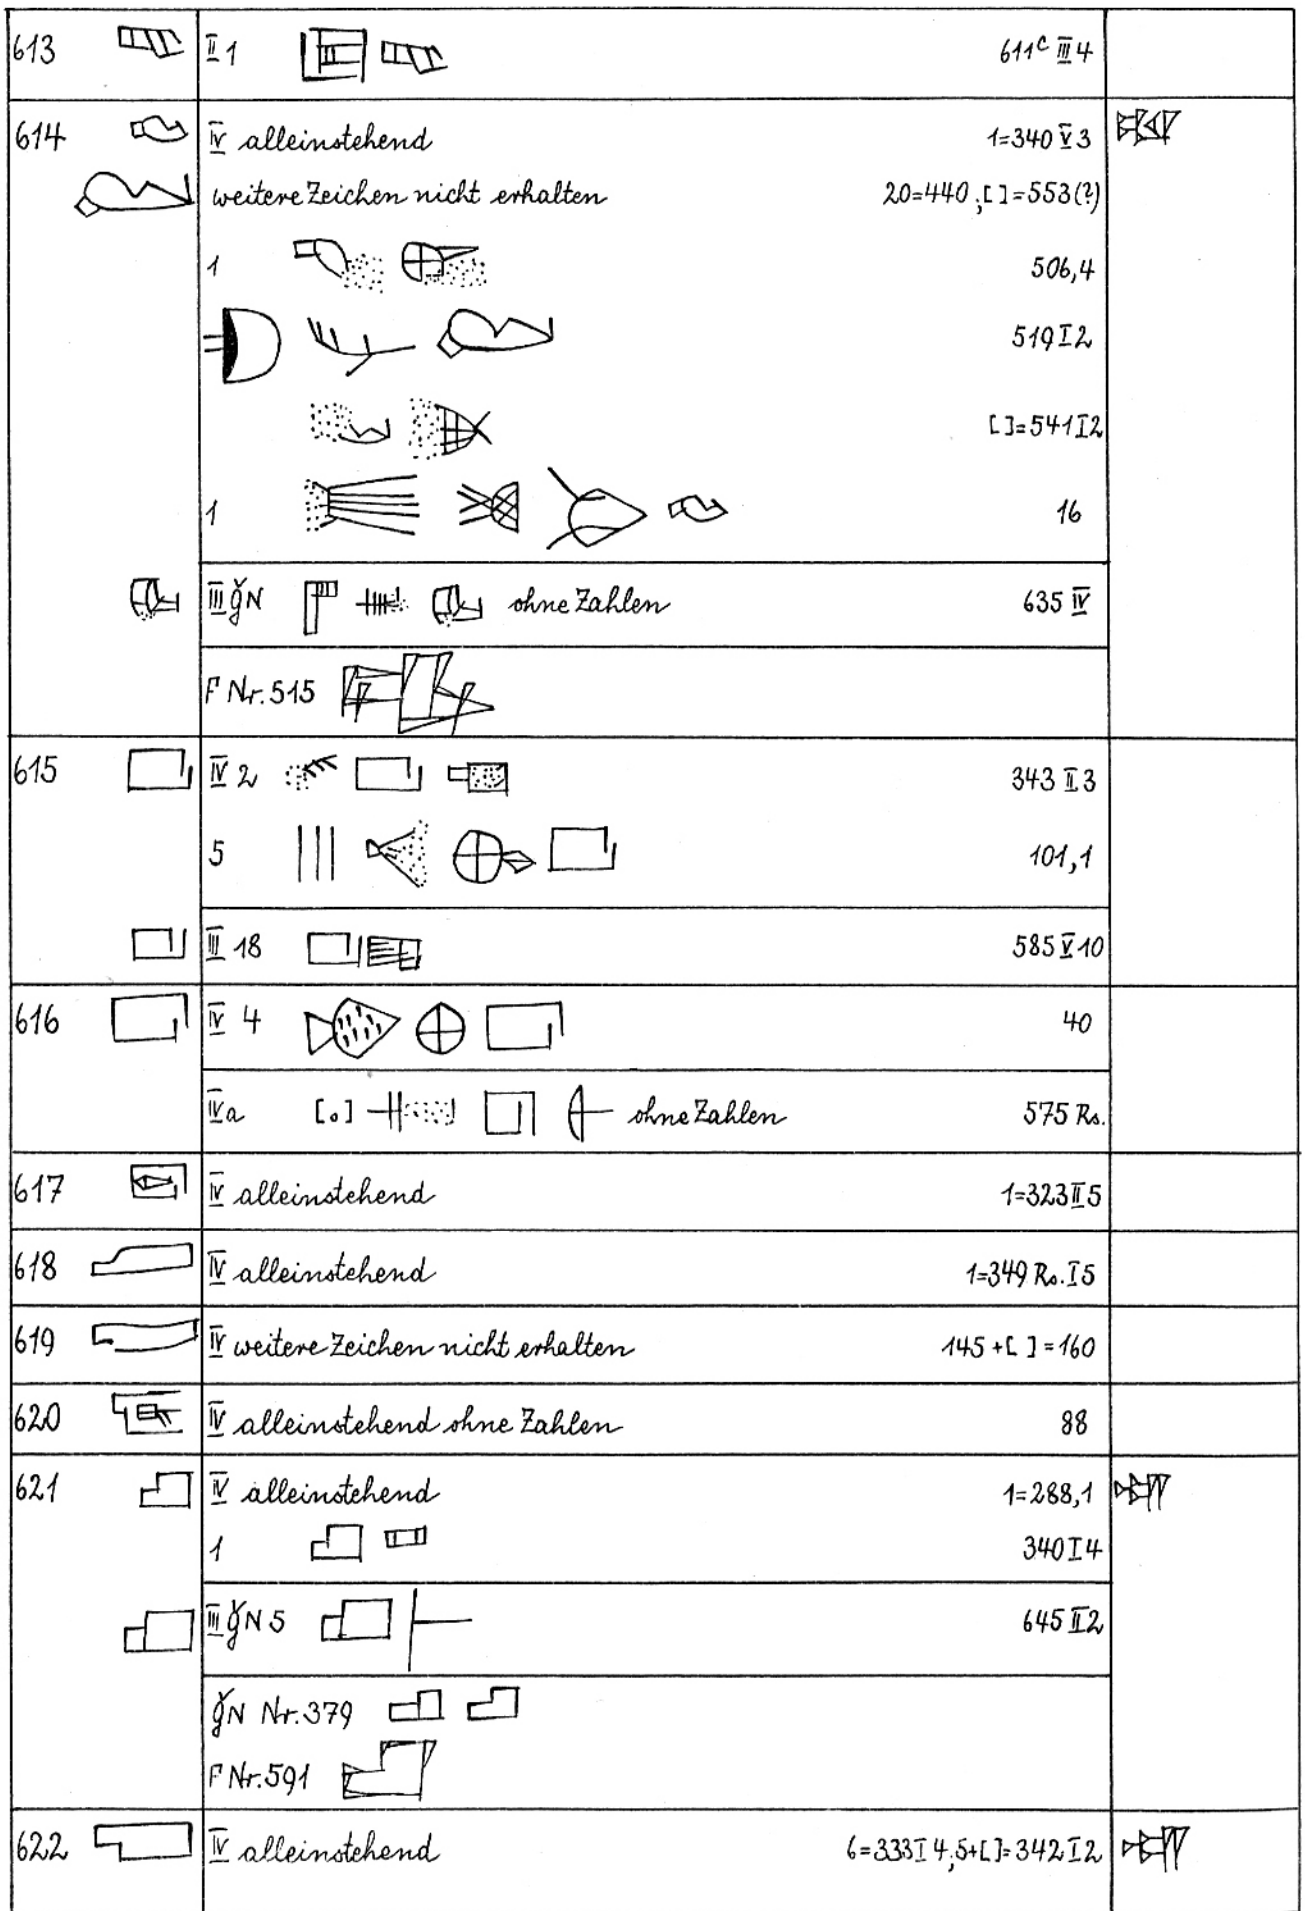 613 II 1 611c III 4
614 IV alleinstehend 1=340 V 3
weitere Zeichen nicht erhalten 20=440, [ ]=553(?)
1 506,4
519 I 2
[ ]=541 I 2
1 16
III ǧN ohne Zahlen 635 IV
F Nr. 515
615 IV 2 343 II 3
5 101,1
III 18 585 V 10
616 IV 4 40
IV a [o] ohne Zahlen 575 Rs.
617 IV alleinstehend 1=323 II 5
618 IV alleinstehend 1=349 Rs. I 5
619 IV weitere Zeichen nicht erhalten 145+[ ]=160
620 IV alleinstehend ohne Zahlen 88
621 IV alleinstehend 1=288,1
1 340 I 4
III ǧN 5 645 II 2
ǧN Nr. 379
F Nr. 591
622 IV alleinstehend 6=333 I 4, 5+[ ]=342 I 2